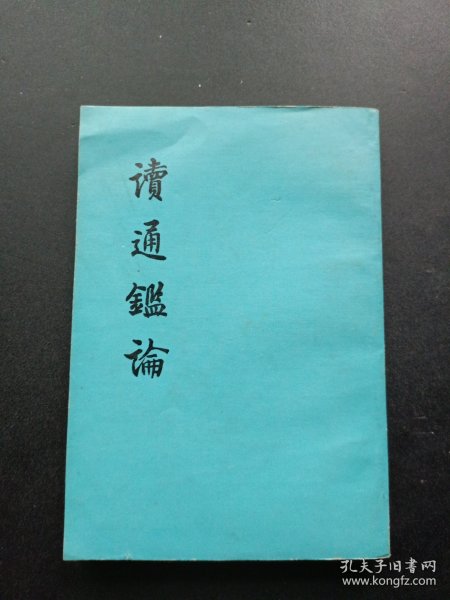 讀通鑑論
孔夫子旧书网
www.kongfz.com